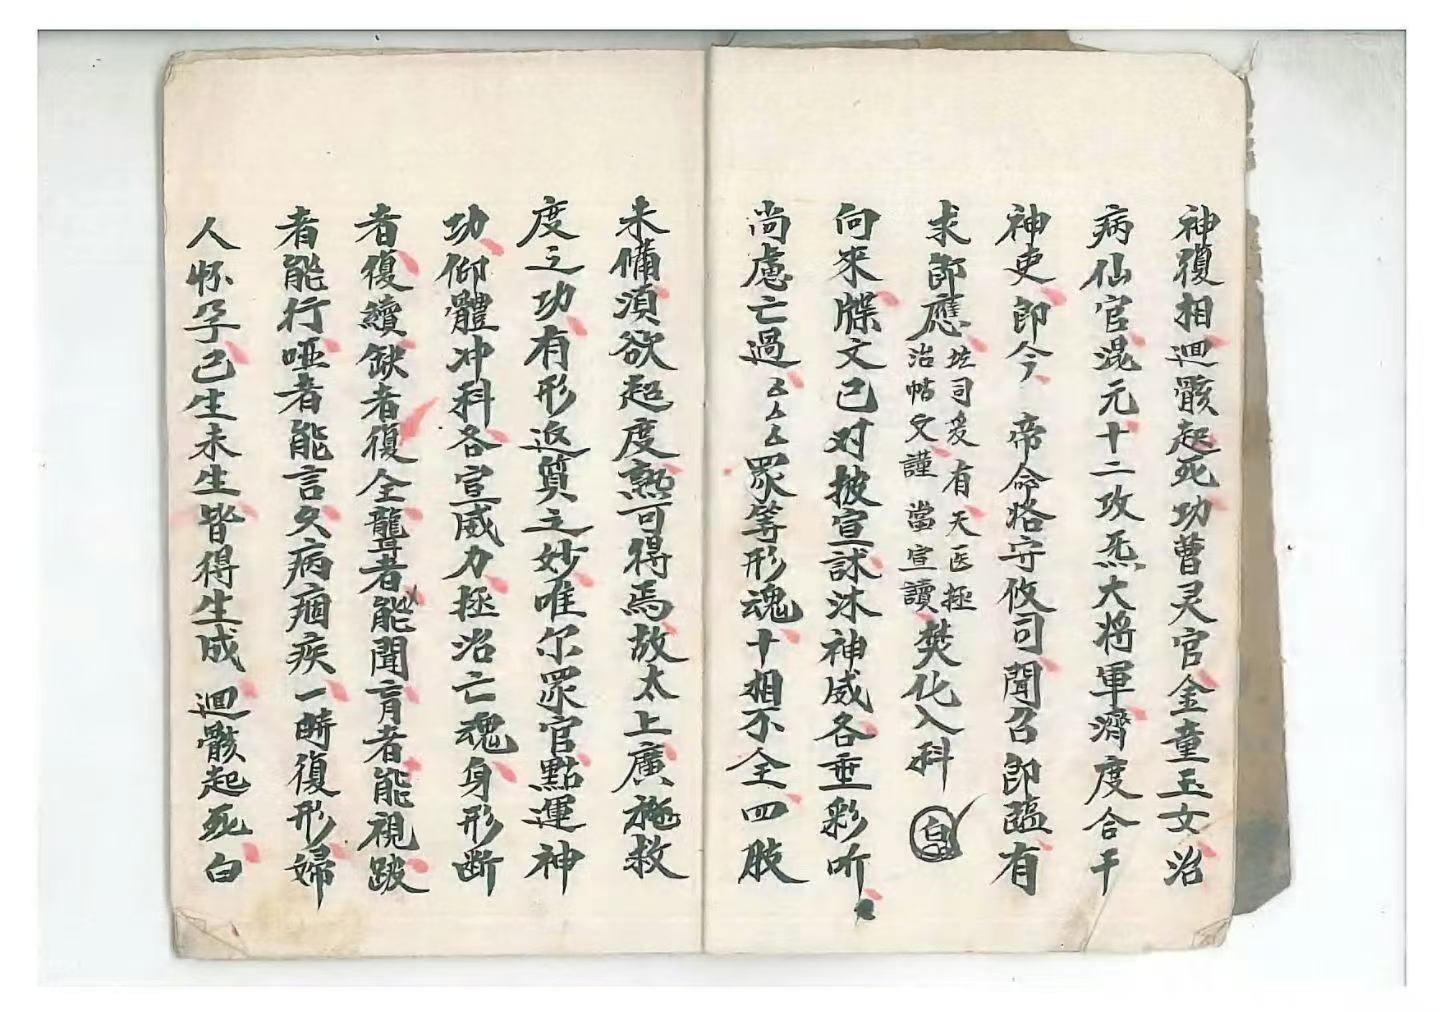 神復相迴骸起死功曹灵官金童玉女治
病仙官混元十二攻炁大将軍濟度合干
神吏即今帝命恪守攸司聞召即臨有
求即應
坛司爰有天医拯
治帖文謹當宣讀
焚化入科
白
向來牒文已对披宣訹沐神威各垂彩听
尚慮亡過厶厶厶眾等形魂十相不全四肢
未備湏欲超度𤍠可得焉故太上廣施救
度之功有形返質之妙唯尔眾官點運神
功仰體冲科各宣威力拯治亡魂身形断
者復續缺者復全聾者能聞盲者能視跛
者能行啞者能言久病痼疾一時復形婦
人怀孕已生未生皆得生成迴骸起死白